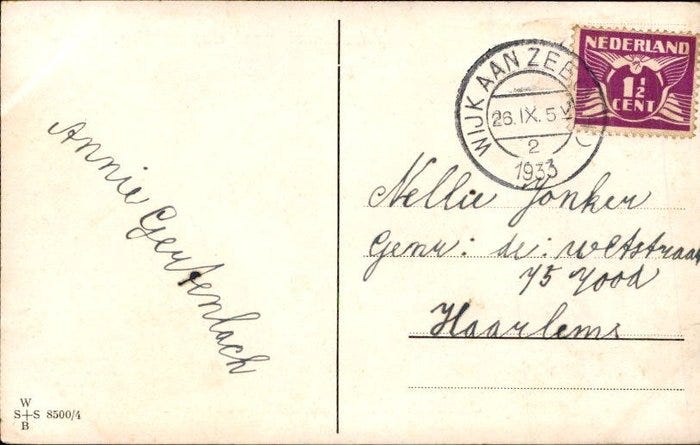 Annie Gertenbach
W
S+S 8500/4
B
NEDERLAND
1½
CENT
WIJK AAN ZEE
26.IX.5
2
1933
Nellie Jonker
Genr: de: wetstraat
75 rood
Haarlem